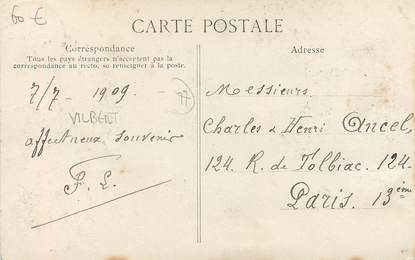 60 €
CARTE POSTALE
Correspondance
Tous les pays étrangers n'acceptent pas la
correspondance au recto, se renseigner à la poste.
7/7 1909.
VILBERT
affectueux souvenir
F. L.
Adresse
Messieurs
Charles & Henri Ancel,
124. R. de Tolbiac. 124.
Paris. 13ème